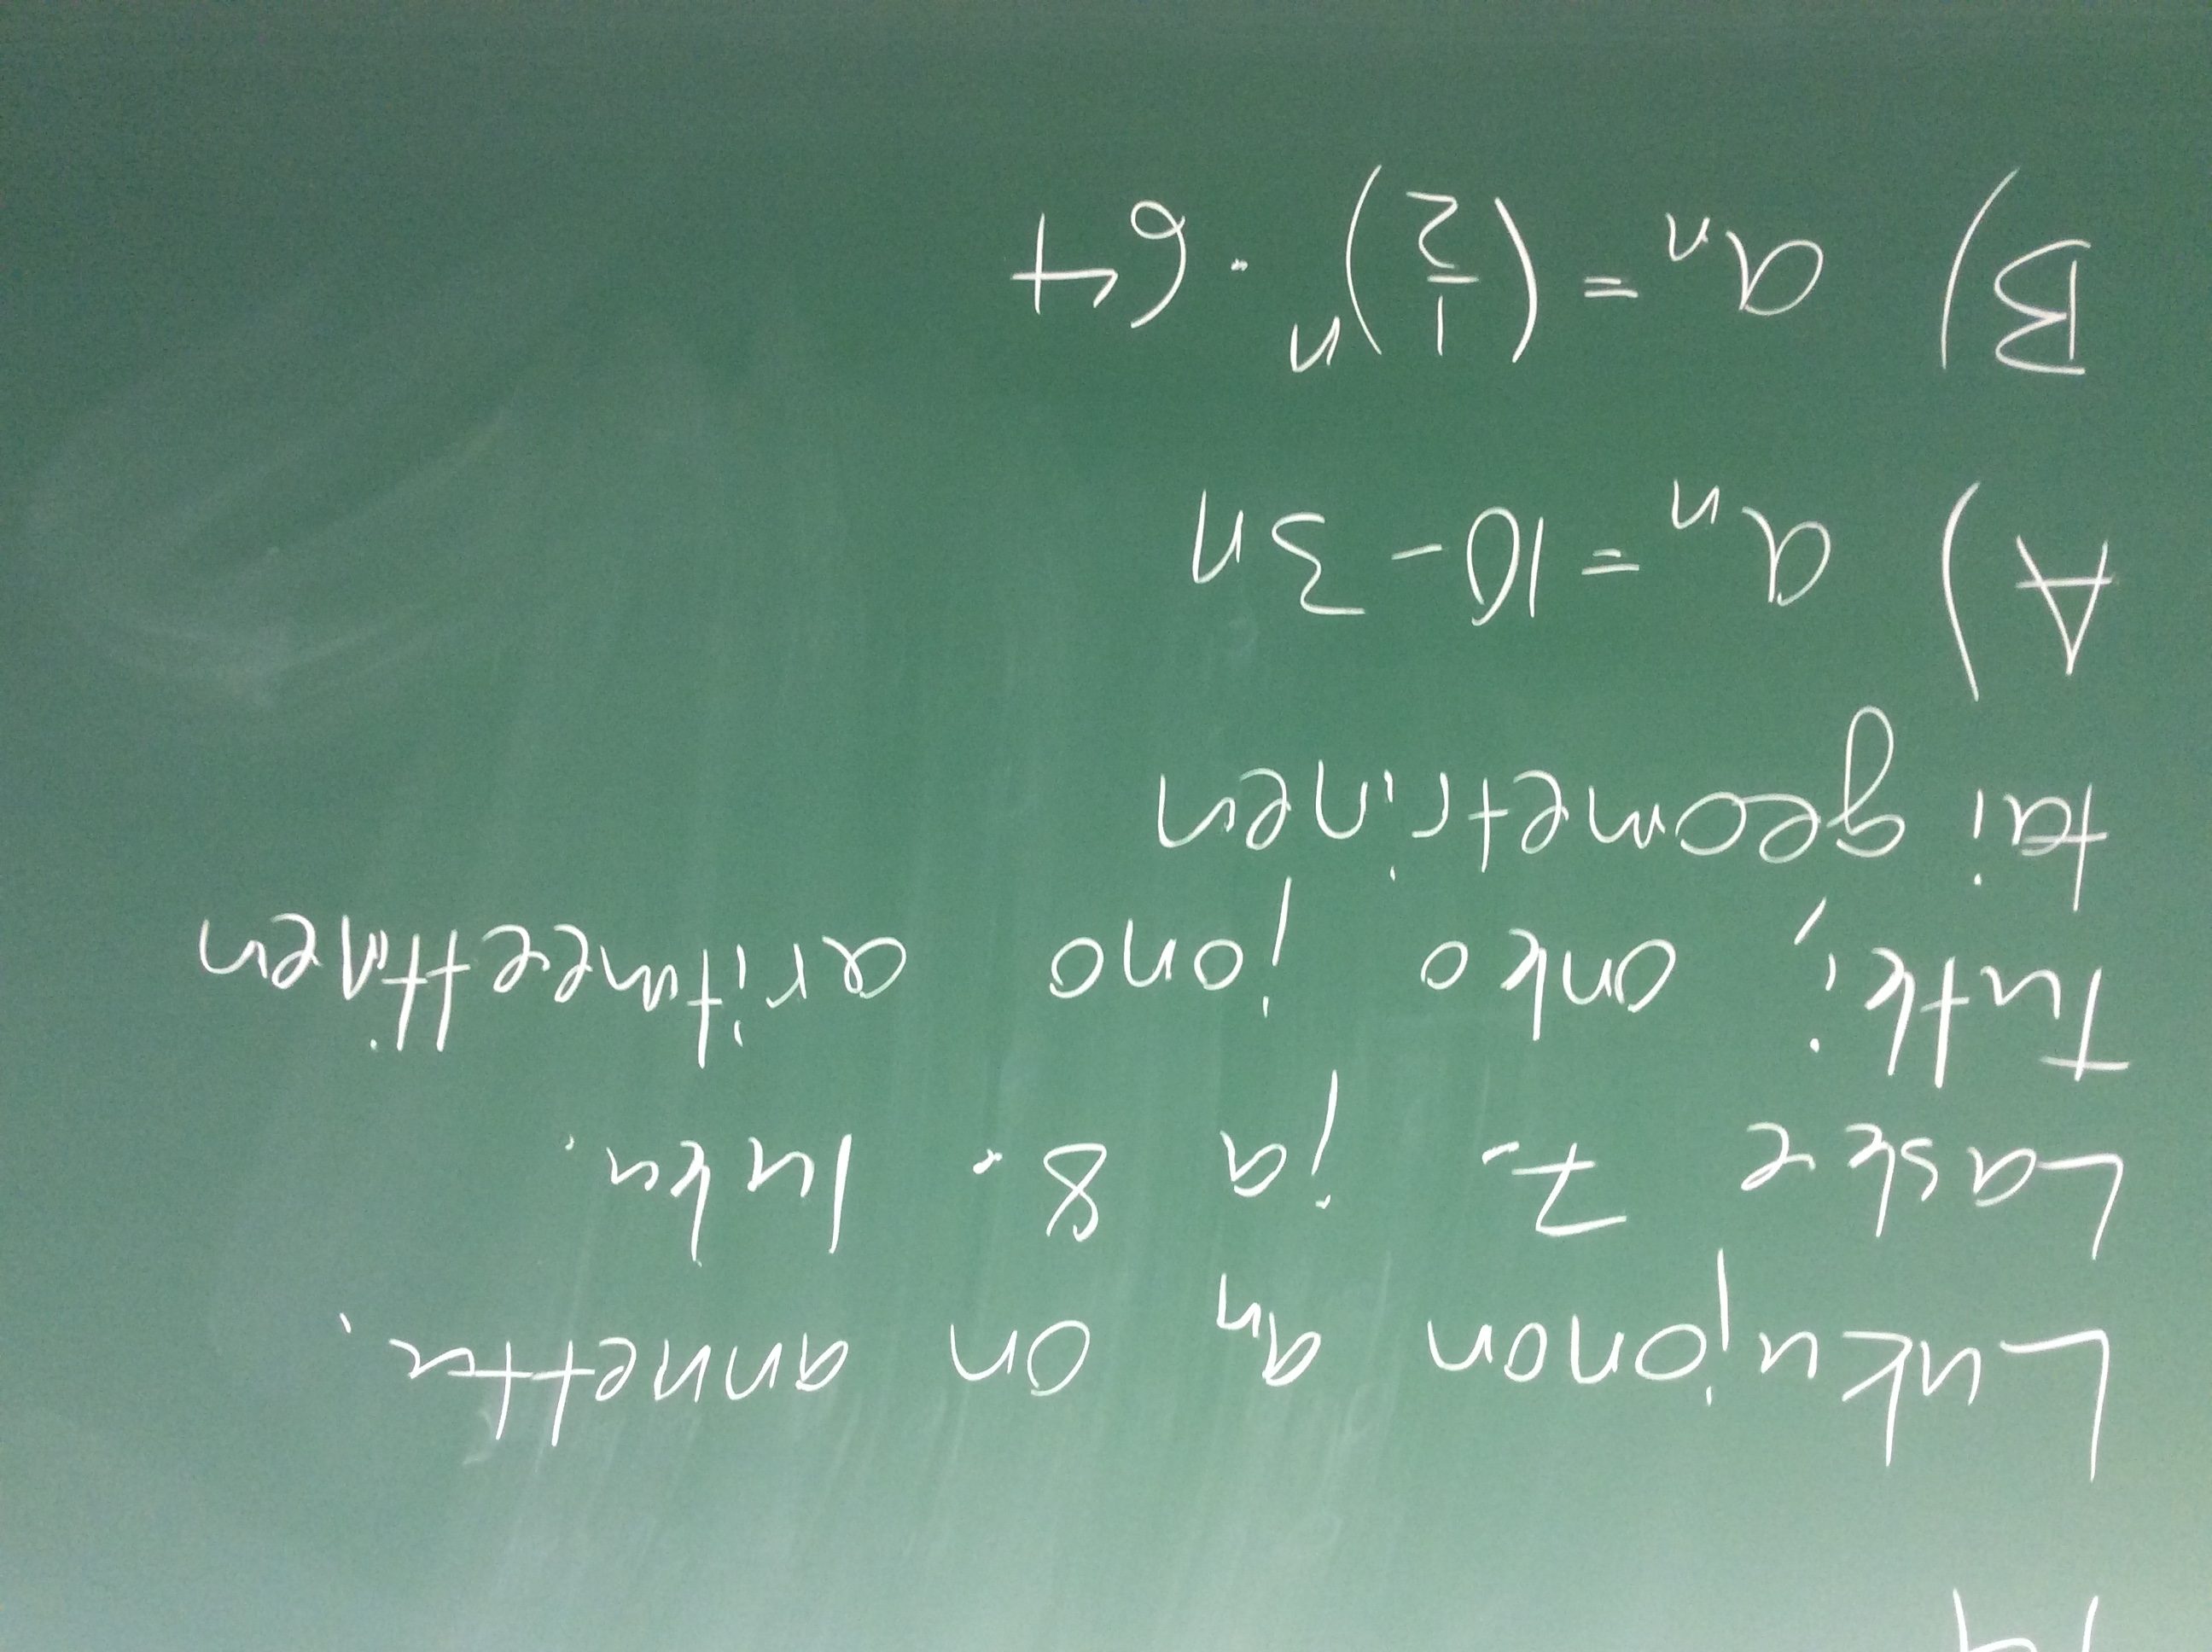 Lukujonon aₙ on annettu.
Laske 7. ja 8. luku.
Tutki, onko jono aritmeettinen
tai geometrinen
A) aₙ = 10 - 3n
B) aₙ = (1/2)ⁿ · 64